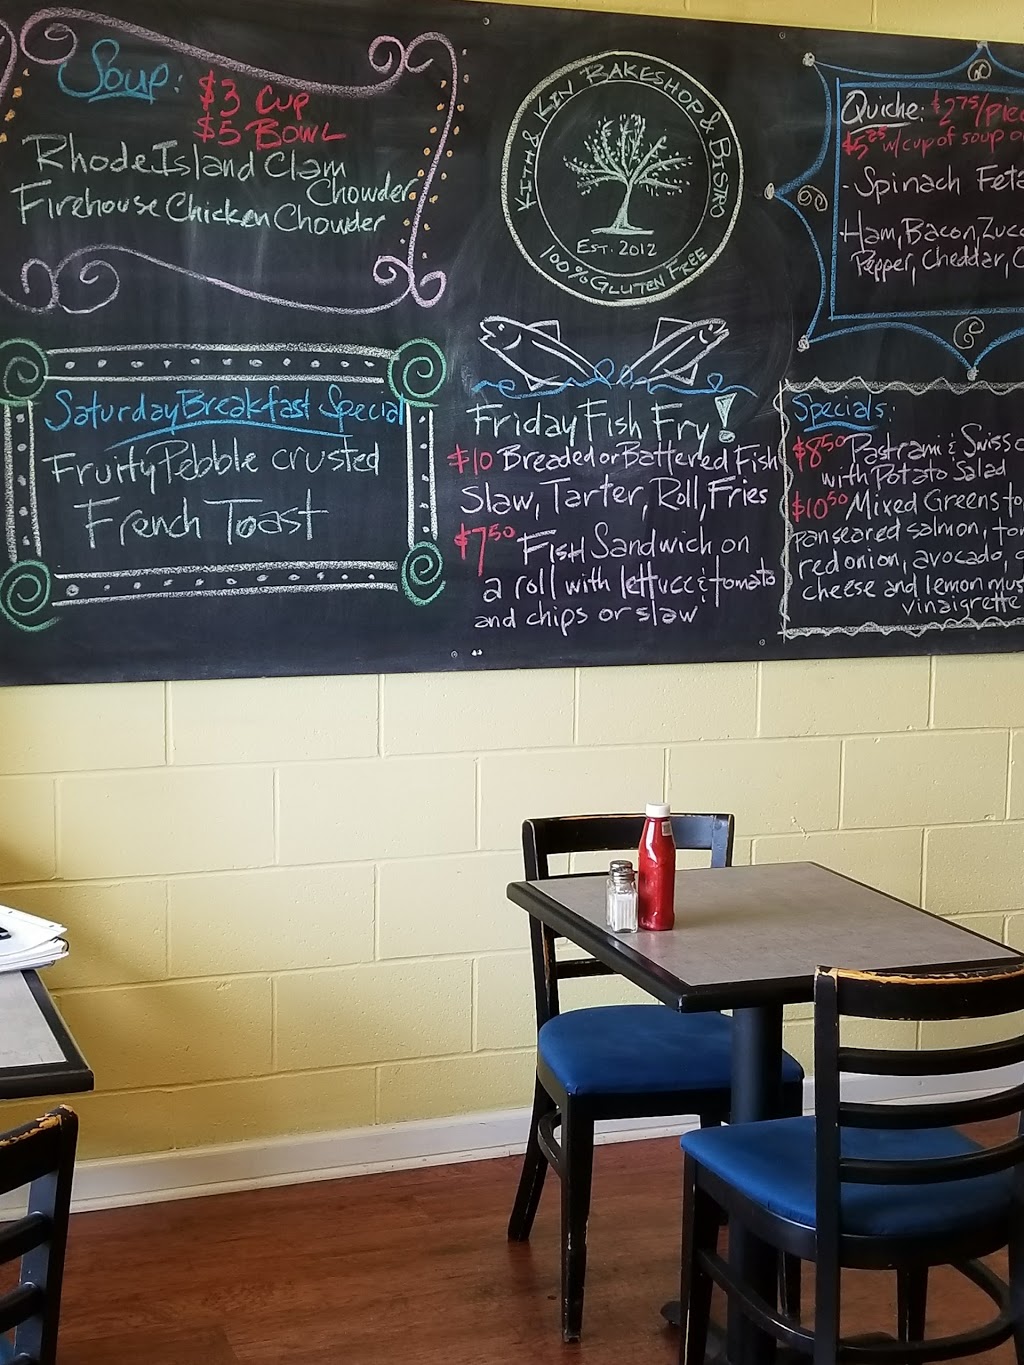 Soup:
$3 Cup
$5 Bowl
Rhode Island Clam
Chowder
Firehouse Chicken Chowder
Saturday Breakfast Special
Fruity Pebble crusted
French Toast
Kith & Kin Bakeshop & Bistro
Est. 2012
100% Gluten Free
Friday Fish Fry!
$10 Breaded or Battered Fish
Slaw, Tarter, Roll, Fries
$7.50 Fish Sandwich on
a roll with lettuce & tomato
and chips or slaw
Quiche: $2.75/piece
$5.25 w/cup of soup
- Spinach Feta
Ham, Bacon,
Pepper, Cheddar,
Specials:
$8.50 Pastrami & Swiss
with Potato Salad
$10.50 Mixed Greens
panseared salmon,
red onion, avocado,
cheese and lemon
vinaigrette